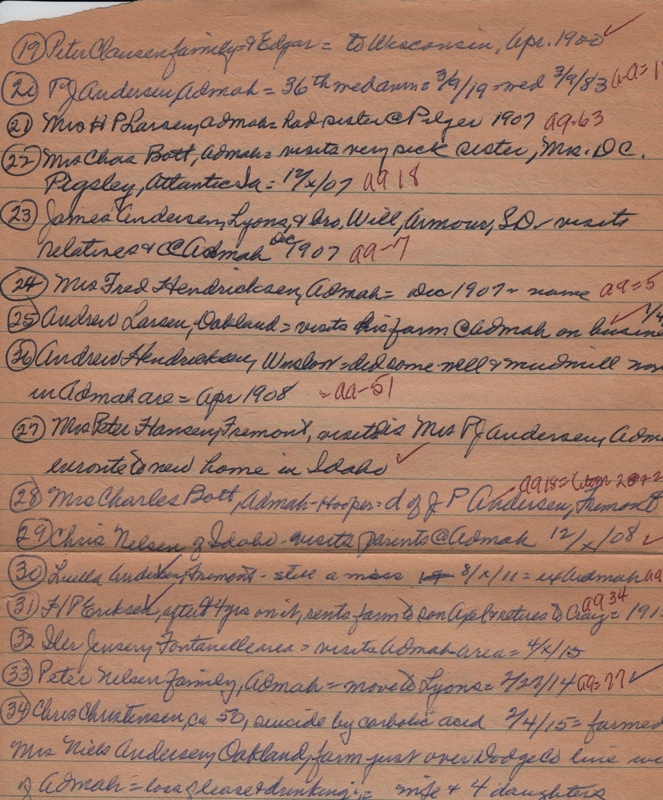 (19) Peter Clausen family & Edgar = to Wisconsin, Apr. 1900 ✓
(20) PJ Andersen, Admah = 36th wed ann = 3/9/19 = wed 3/9/83
(21) Mrs H P Larsen, Admah = had sister @ Pilger 1907 aa-63
(22) Mrs Chas Bott, Admah = visits very sick sister, Mrs. D C.
Pigsley, Atlantic Ia = 12/x/07 aa 18
(23) James Andersen, Lyons, & bro, Will, Armour, S.D. visits
relatives & @ Admah Dec 1907 aa-7
(24) Mrs Fred Hendricksen, Admah = Dec 1907 - name aa=5
(25) Andrew Larsen, Oakland = visits his farm @ Admah on
(26) Andrew Hendricksen, Winslow = did some well & windmill
in Admah are = Apr 1908 = aa-51
(27) Mrs Peter Hansen, Fremont, visits sis Mrs PJ Andersen,
enroute to new home in Idaho ✓
aa18=
(28) Mrs Charles Bott, Admah-Hooper = d of J P Andersen, Fremont
(29) Chris Nelsen of Idaho - visits parents @ Admah 12/x/08 ✓
(30) Luella Andersen, Fremont - still a miss, 8/x/11 = ex Admah aa
(31) H P Eriksen, after 44 yrs on it, rents farm to son Axel & retires to Craig = aa 34
(32) Iler Jensen, Fontanelle area = visits Admah area = 4/x/15
(33) Peter Nelsen family, Admah = move to Lyons = 2/27/14 aa=77 ✓
(34) Chris Christensen, ca 50, suicide by carbolic acid 2/4/15 = farmed
Mrs Niels Andersen, Oakland, farm just over Dodge Co line
of Admah = loss of lease & drinking = wife & 4 daughters